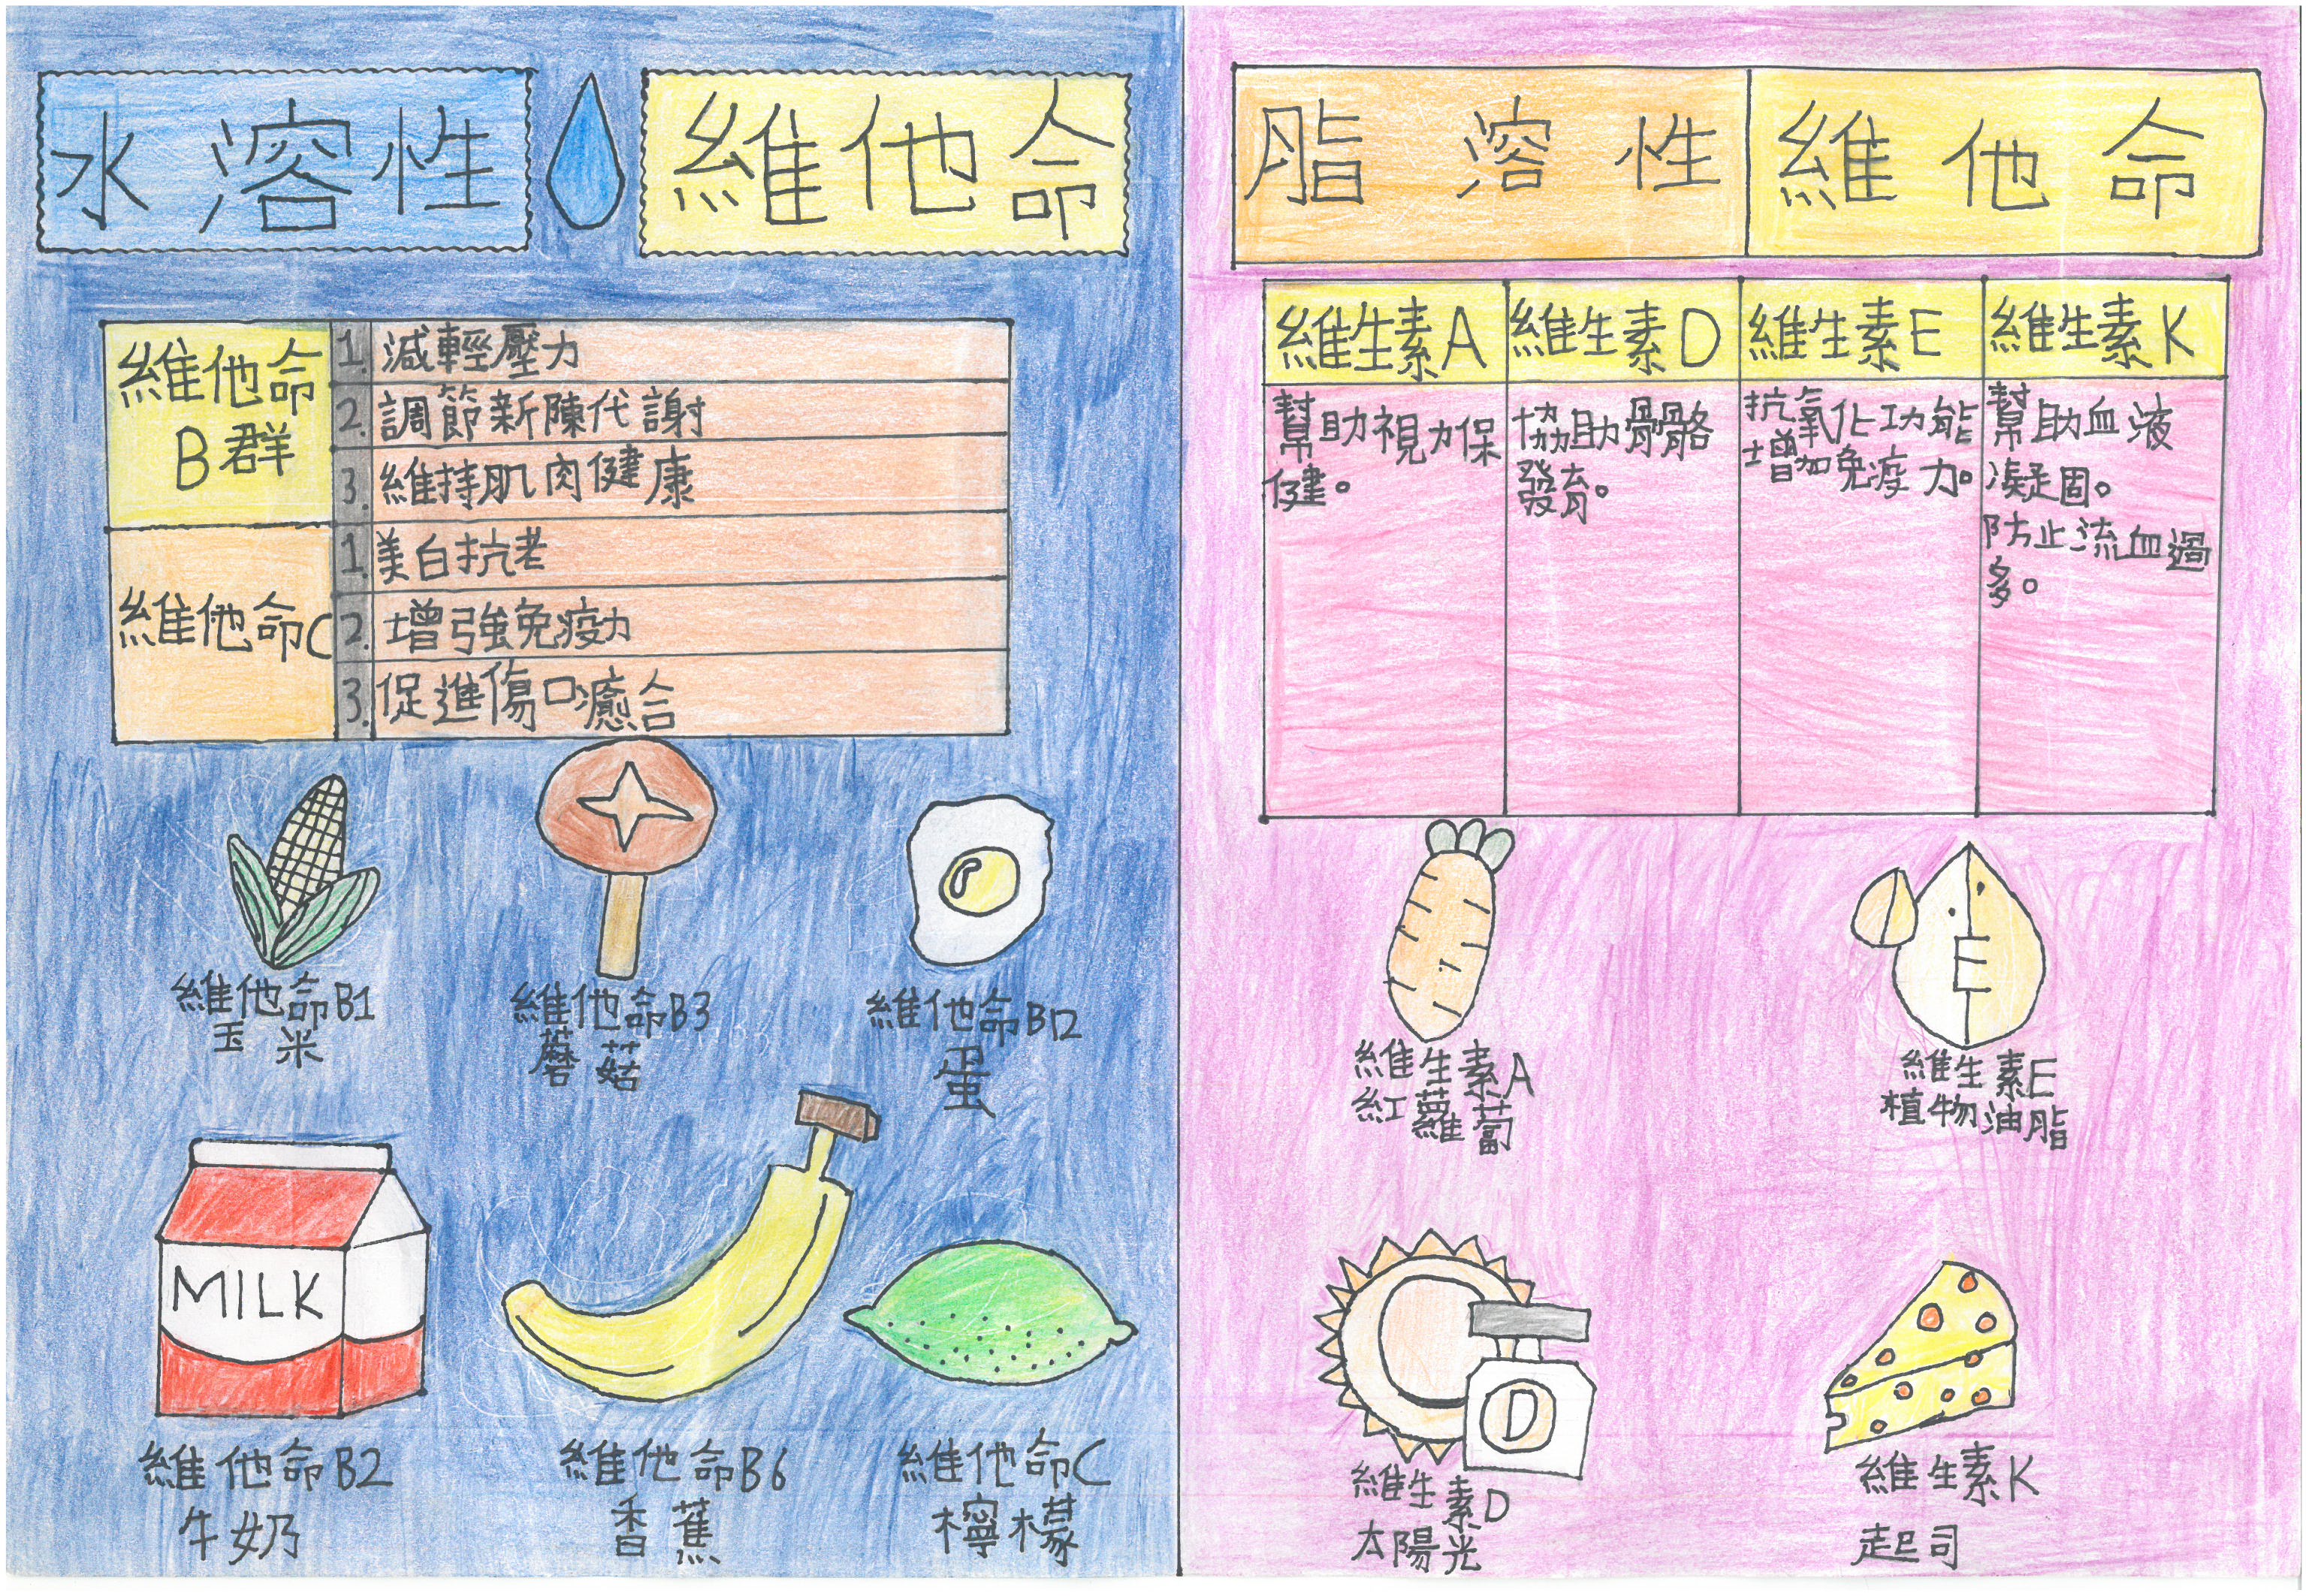 水溶性
維他命
維他命
B群
1. 減輕壓力
2. 調節新陳代謝
3. 維持肌肉健康
維他命C
1. 美白抗老
2. 增強免疫力
3. 促進傷口癒合
維他命B1
玉米
維他命B3
蘑菇
維他命B12
蛋
MILK
維他命B2
牛奶
維他命B6
香蕉
維他命C
檸檬
脂溶性
維他命
維生素A
幫助視力保
健。
維生素D
協助骨骼
發育。
維生素E
抗氧化功能
增加免疫力。
維生素K
幫助血液
凝固。
防止流血過
多。
維生素A
紅蘿蔔
E
維生素E
植物油脂
D
維生素D
太陽光
維生素K
起司